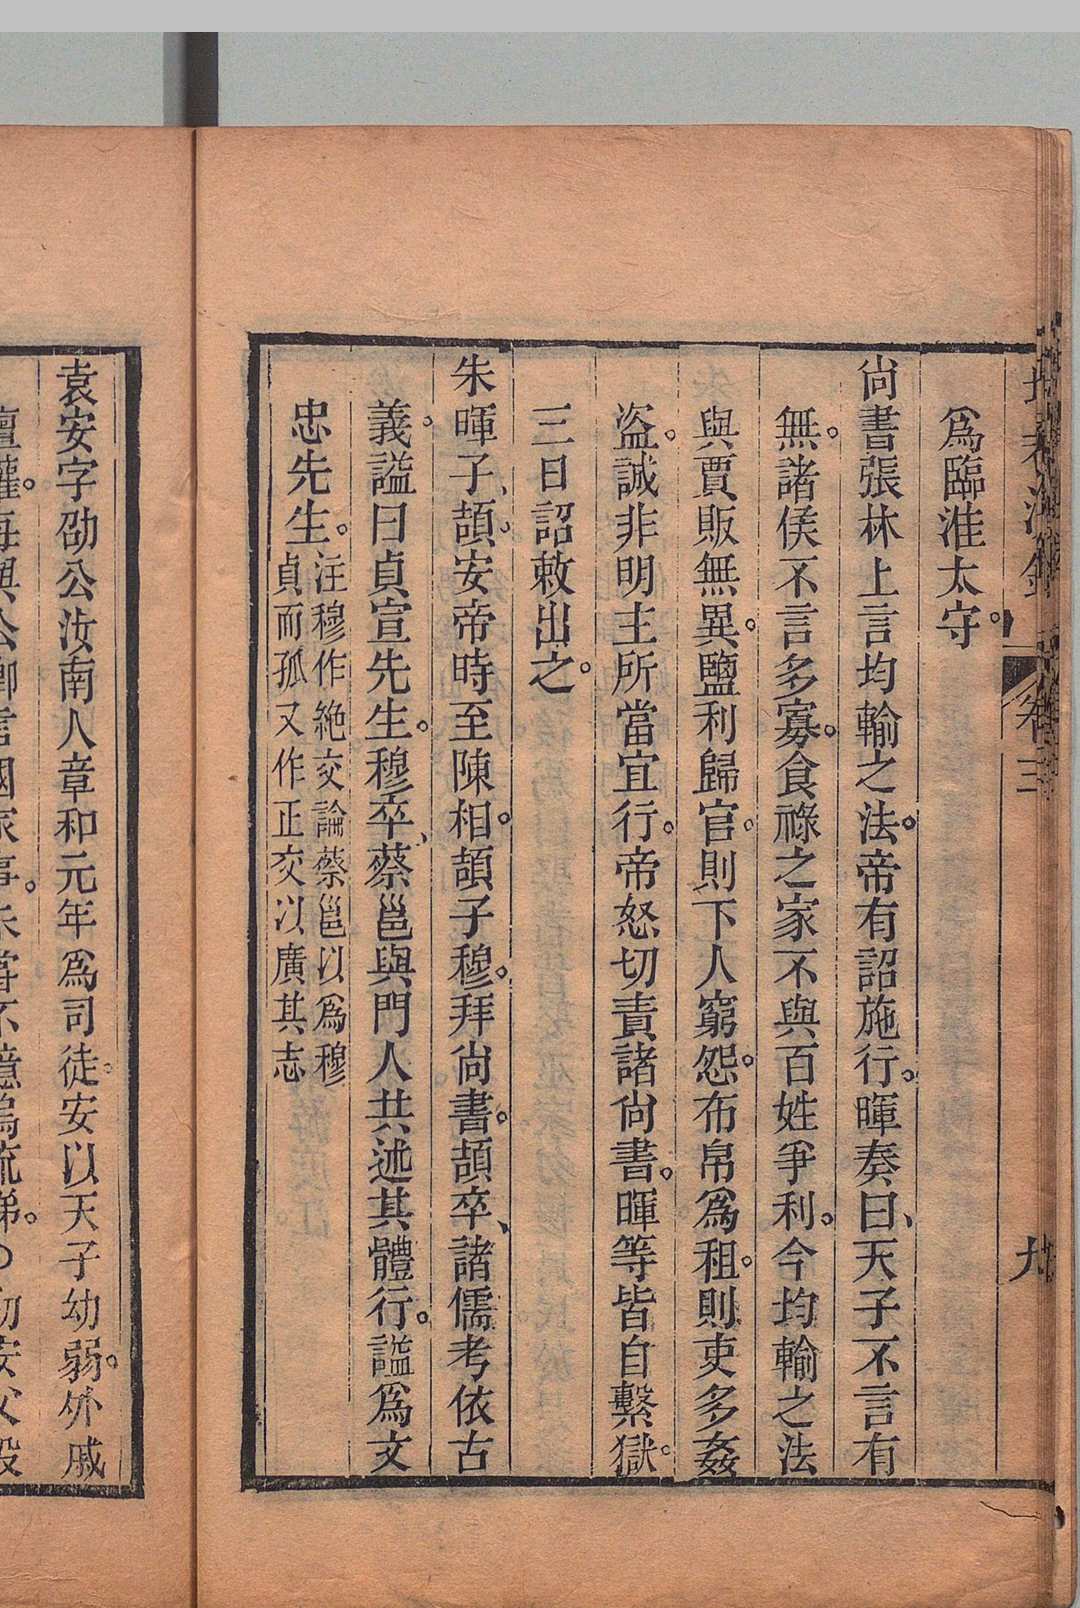 卷三
九
爲臨淮太守。
尙書張林上言均輸之法。帝有詔施行。暉奏曰、天子不言有
無。諸侯不言多寡。食祿之家不與百姓爭利。今均輸之法
與賈販無異。鹽利歸官。則下人窮怨。布帛爲租。則吏多姦
盜。誠非明主所當宜行。帝怒切責諸尙書。暉等皆自繫獄。
三日詔敕出之。
朱暉子、頡。安帝時至陳相。頡子穆。拜尙書。頡卒、諸儒考依古
義。諡曰貞宣先生。穆卒、蔡邕與門人共述其體行。諡爲文
忠先生。注穆作絶交論蔡邕以爲穆
貞而孤又作正交以廣其志
袁安字劭公汝南人章和元年爲司徒。安以天子幼弱。外戚
擅權。每與公卿言國家事。未嘗不噫嗚流涕。○初安父歿